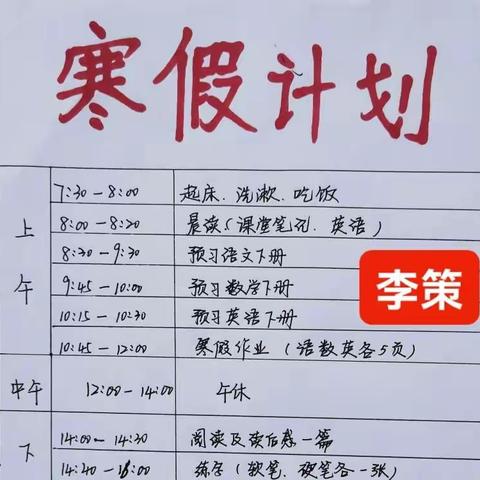 寒假计划
上午
7:30-8:00 起床、洗漱、吃饭
8:00-8:20 晨读(课堂笔记、英语)
8:30-9:30 预习语文下册
9:45-10:00 预习数学下册
10:15-10:30 预习英语下册
10:45-12:00 寒假作业(语数英各5页)
李策
中午 12:00-14:00 午休
下
14:00-14:30 阅读及读后感一篇
14:40-16:00 练字(软笔、硬笔各一张)